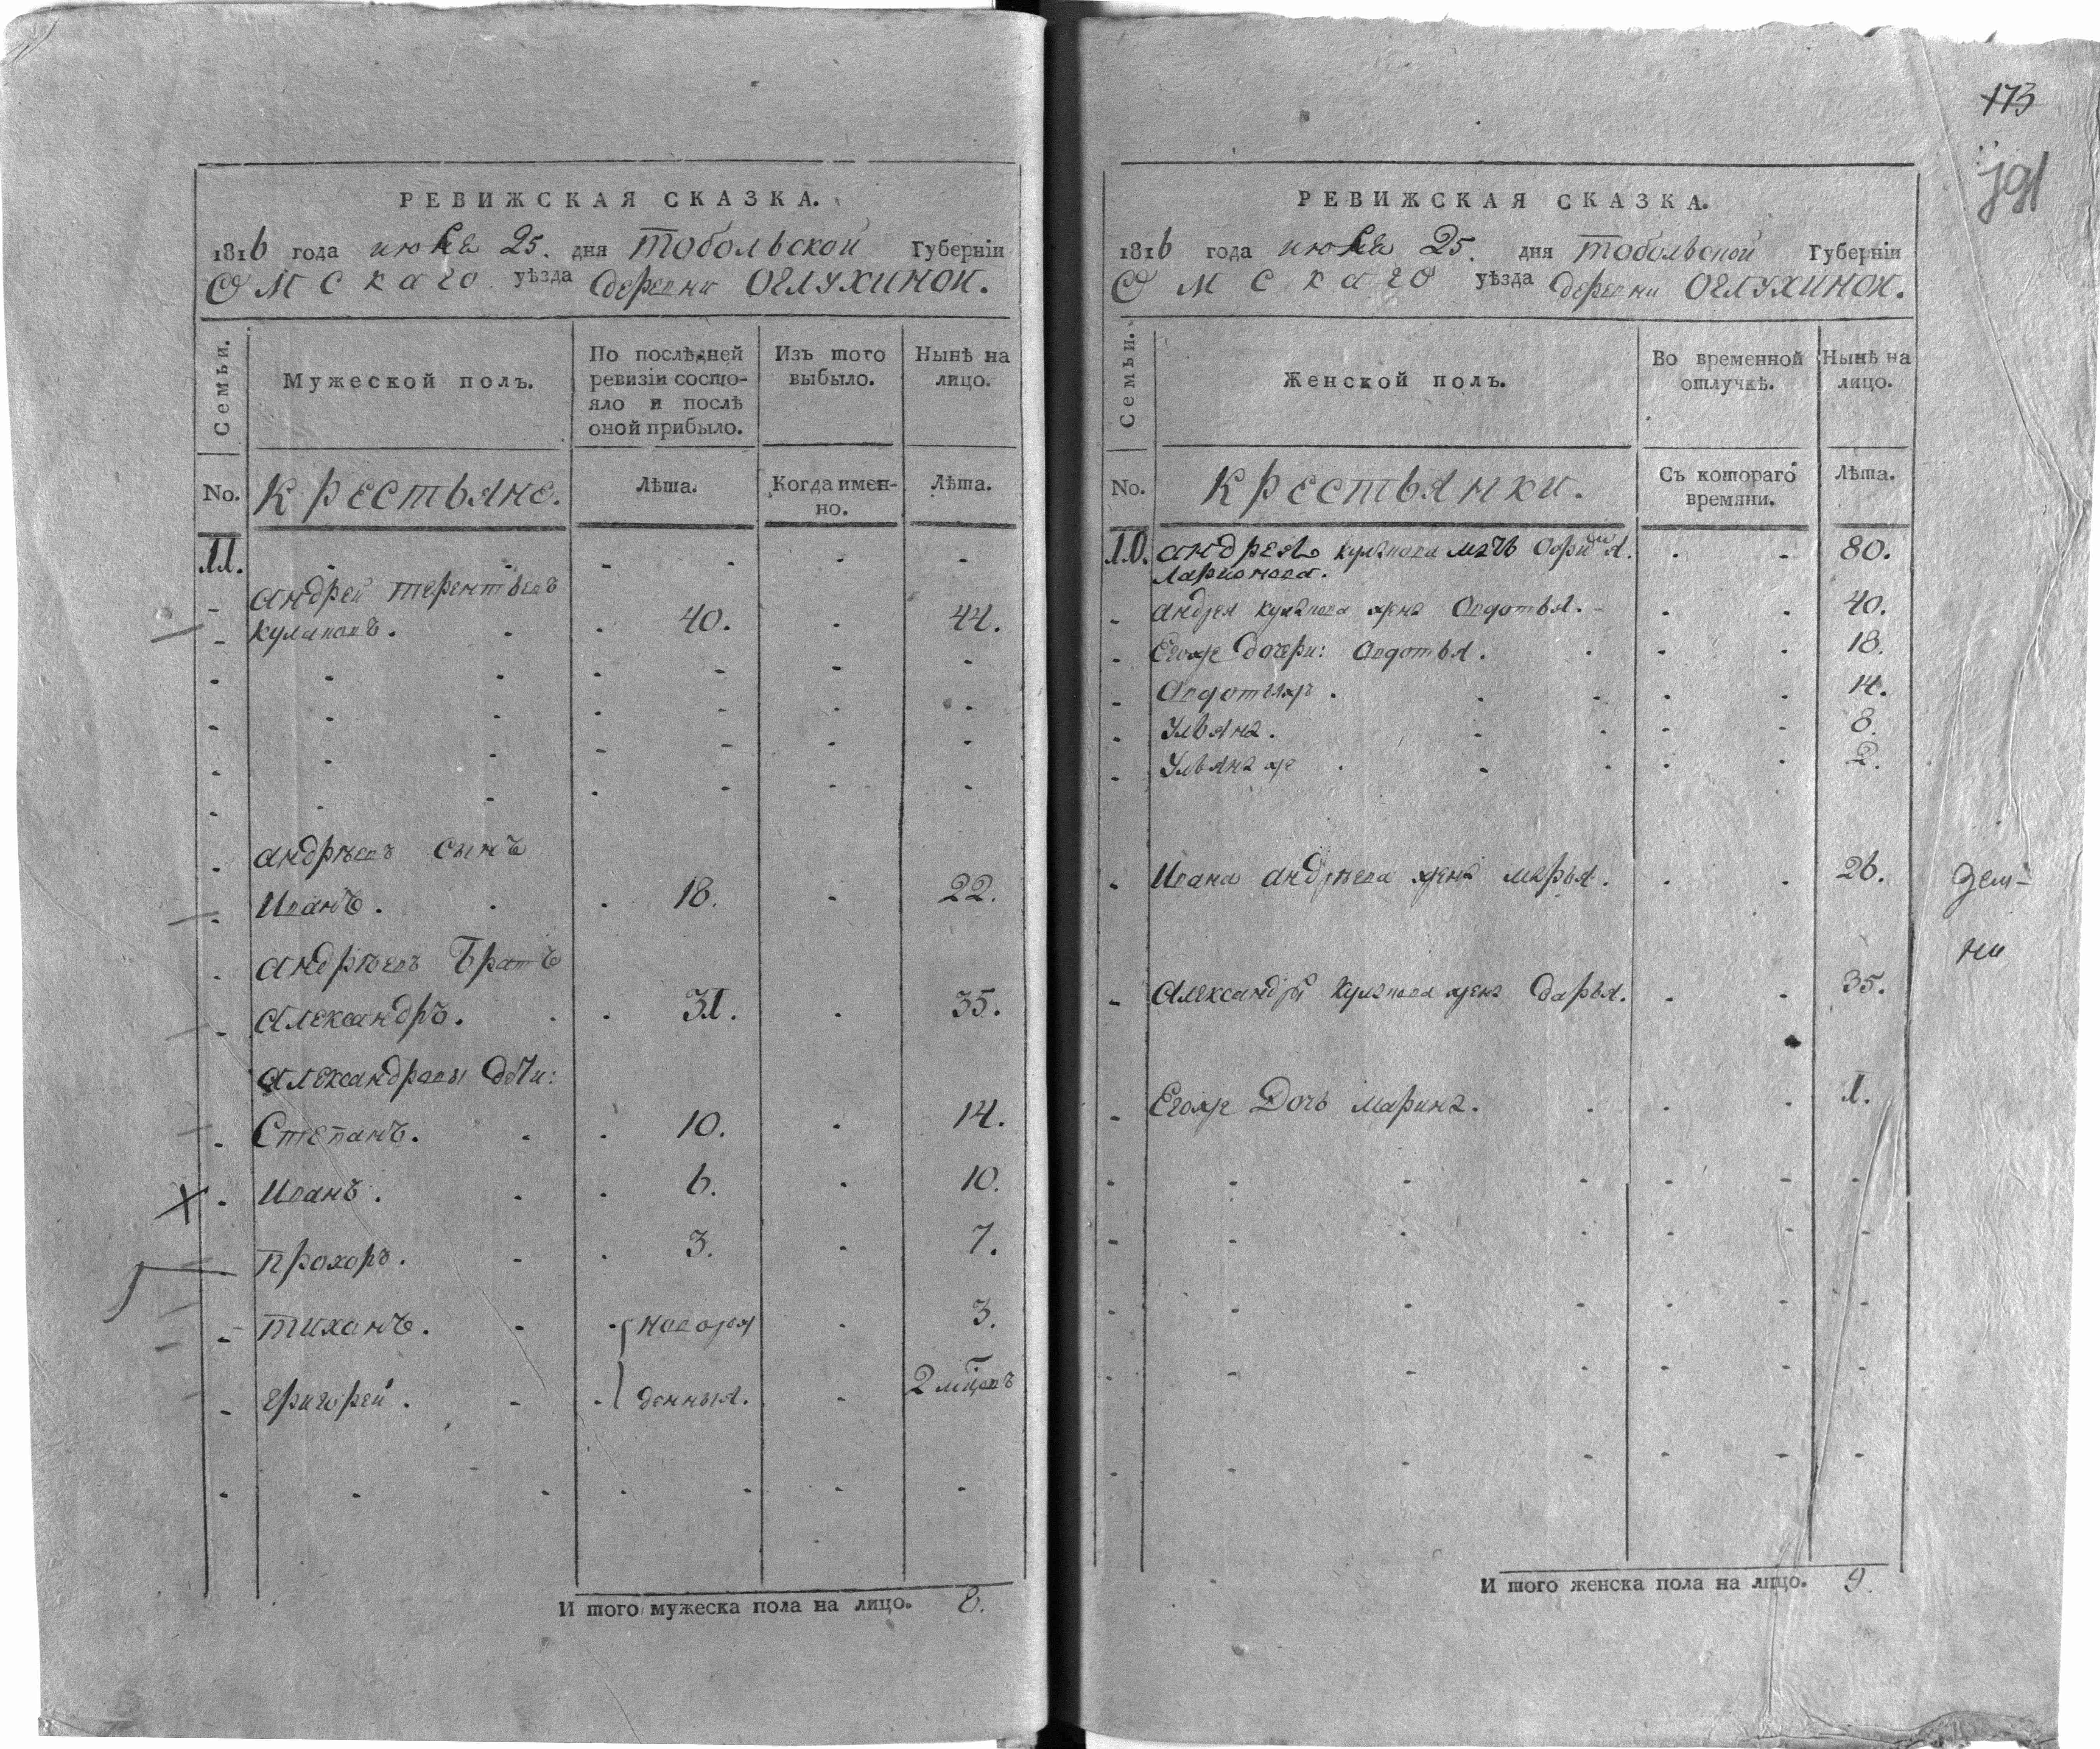 РЕВИЖСКАЯ СКАЗКА.
1816 года июля 25. дня Тобольской Губернїи
Омскаго уѣзда деревни Оглухиной.
Семьи.
Мужеской полъ.
По послѣдней ревизїи состо-
яло и послѣ
оной прибыло.
Изъ того
выбыло.
Нынѣ на
лицо.
No.
Крестьяне.
Лѣта.
Когда имен-
но.
Лѣта.
11.
Андрей Терентьевъ
Кулаковъ. 40. 44.
Андрѣевъ сынъ
Иванъ. 18. 22.
Андрѣевъ Братъ
Александръ. 31. 35.
Александровы дѣти:
Степанъ. 10. 14.
Иванъ. 6. 10.
Прохоръ. 3. 7.
Тиханъ. Новорож 3.
Григорей. денныя. 2 мѣсецовъ
И того мужеска пола на лицо. 8.
173
191
РЕВИЖСКАЯ СКАЗКА.
1816 года июля 25. дня Тобольской Губернїи
Омскаго уѣзда деревни Оглухиной.
Семьи.
Женской полъ.
Во временной
отлучкѣ.
Нынѣ на
лицо.
No.
Крестьянки.
Съ котораго
времяни.
Лѣта.
10. Андрея Кулакова мать 80.
Ларионова.
Андрея Кулакова жена Авдотья. 40.
Егоже дочери: Авдотья. 18.
Авдотьяжъ. 14.
Ульяна. 8.
Ульяна же 2.
Ивана Андрѣева жена Марья. 26.
Александры Кулакова жена Дарья. 35.
Егоже Дочь Марина. 1.
И того женска пола на лицо. 9.